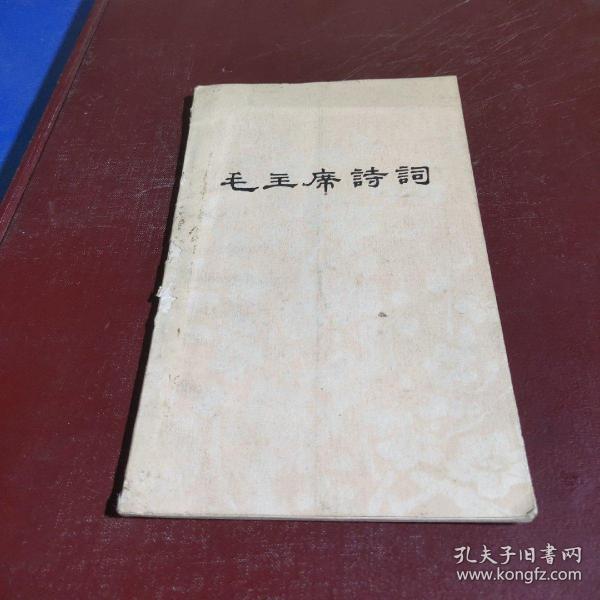 毛主席詩詞
孔夫子旧書网
www.kongfz.com